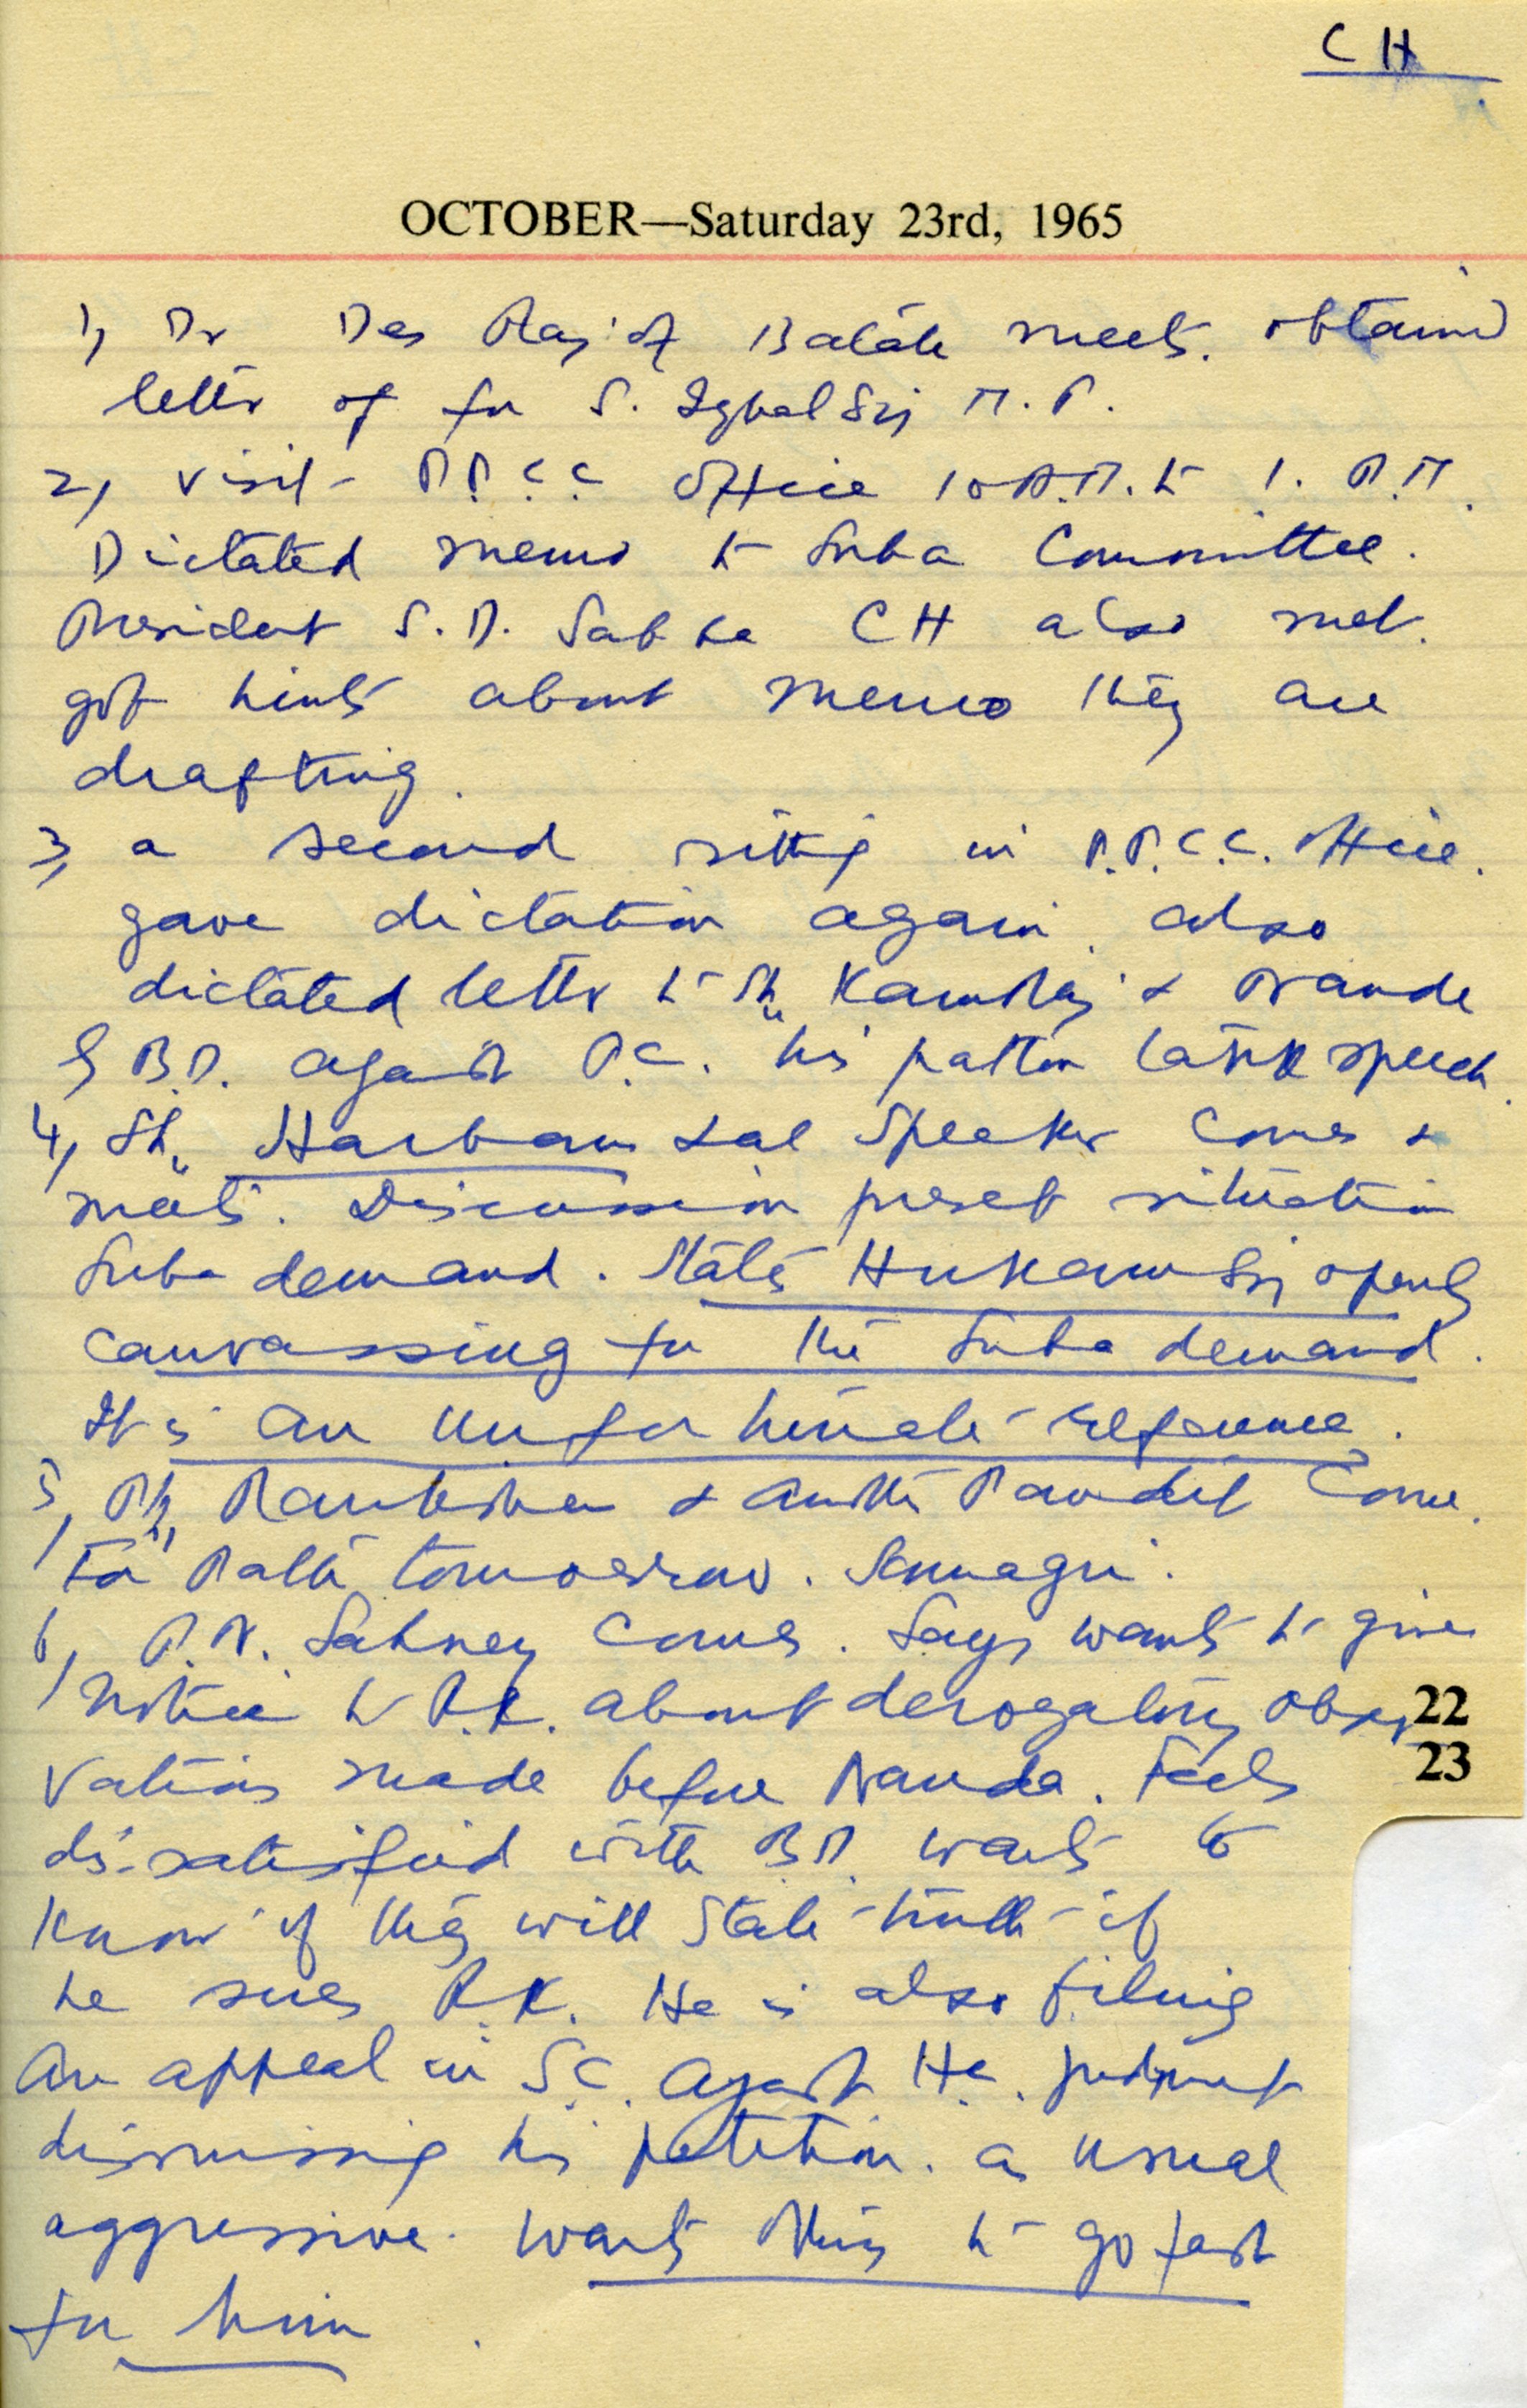 CH
OCTOBER—Saturday 23rd, 1965
1, Dr Des Raj of Batala meets. obtained
letter of for S. Iqbal Sing M.P.
2, visit P.P.C.C office 10 A.M. to 1. P.M.
Dictated memo to Suba Committee.
President S.D. Sabha CH also met.
got hints about memo they are
drafting.
3, a second sitting in P.P.C.C. office.
gave dictation again. also
dictated letter to Sh. Kamraj & Nanda
& B.D. against P.C. his
speech.
4, Sh. Harbans Lal Speaker comes &
meets. Discussion present situation
Suba demand. States Hukam Sing openly
canvassing for the Suba demand.
It is an unfortunate reference.
5, Pt. & another Pandit come.
For tomorrow.
6, P.N. Sahney comes. Says wants to give
notice to R.K. about derogatory obser
vations made before Nanda. Feels
dissatisfied with B.D. wants to
know if they will state truth if
he sues R.K. He is also filing
an appeal in S.C. against H.C. judgment
dismissing his petition. as usual
aggressive. wants things to go fast
for him.
22
23